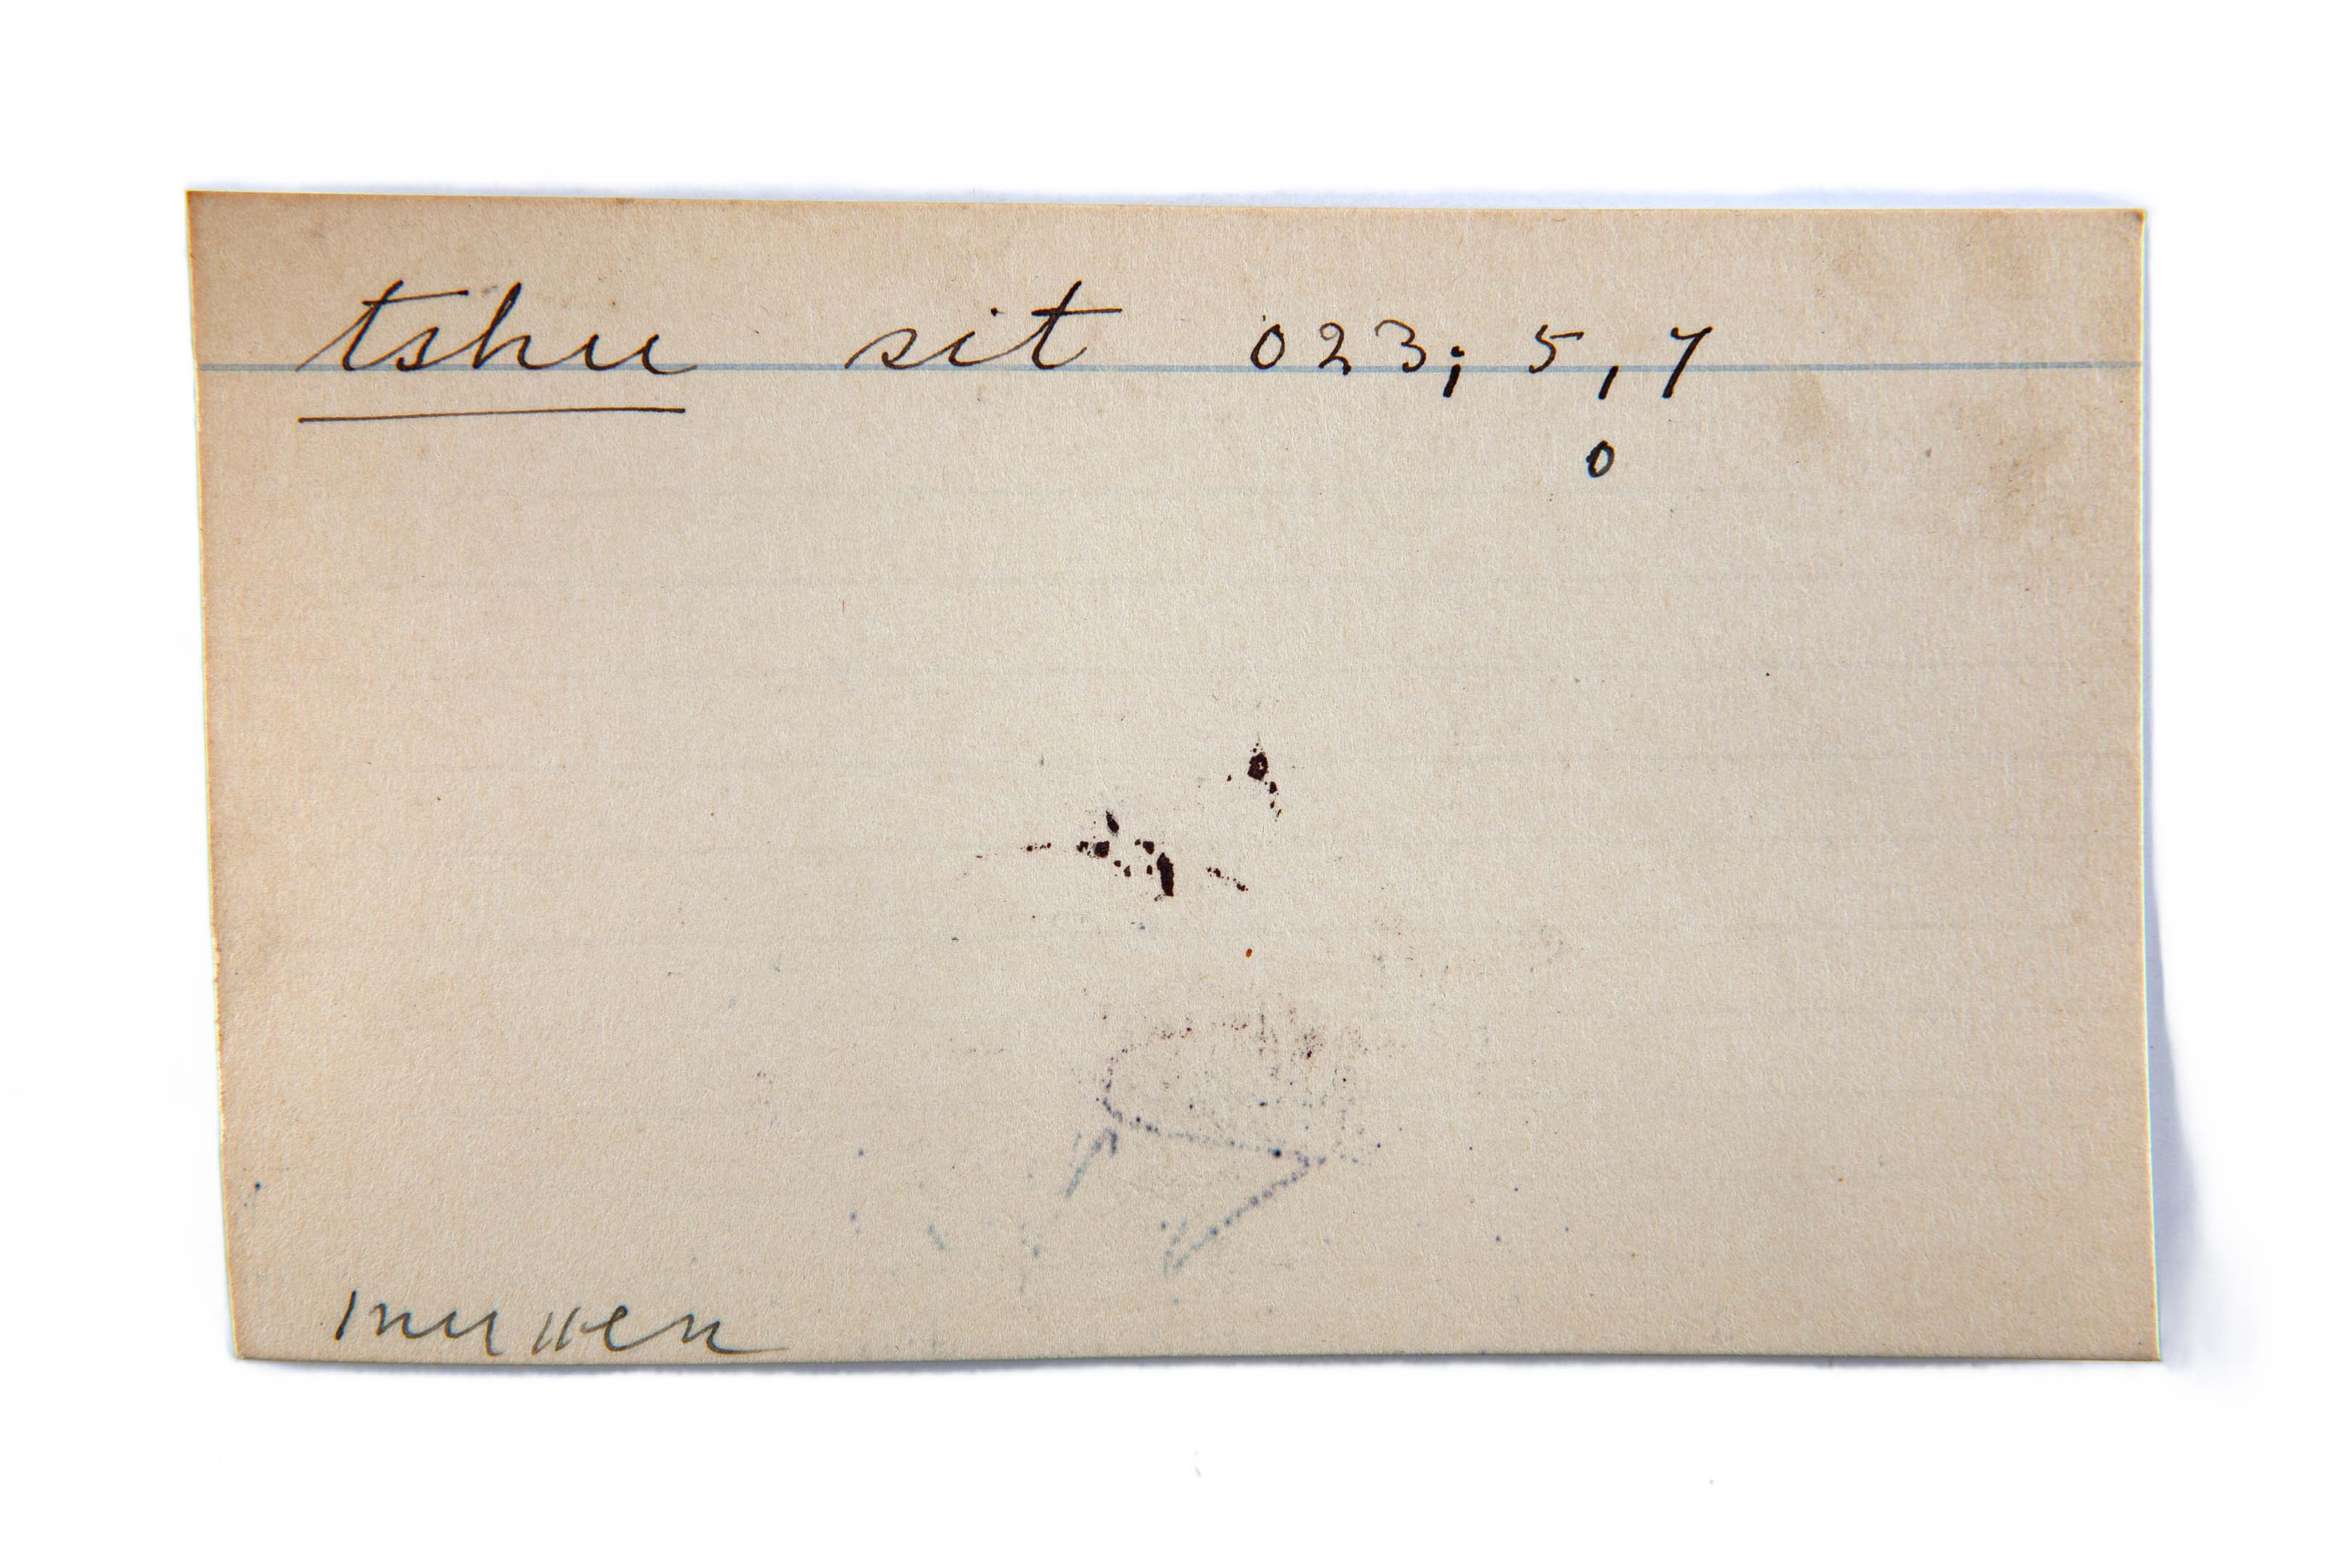 tshu sit 023; 5, 7
0